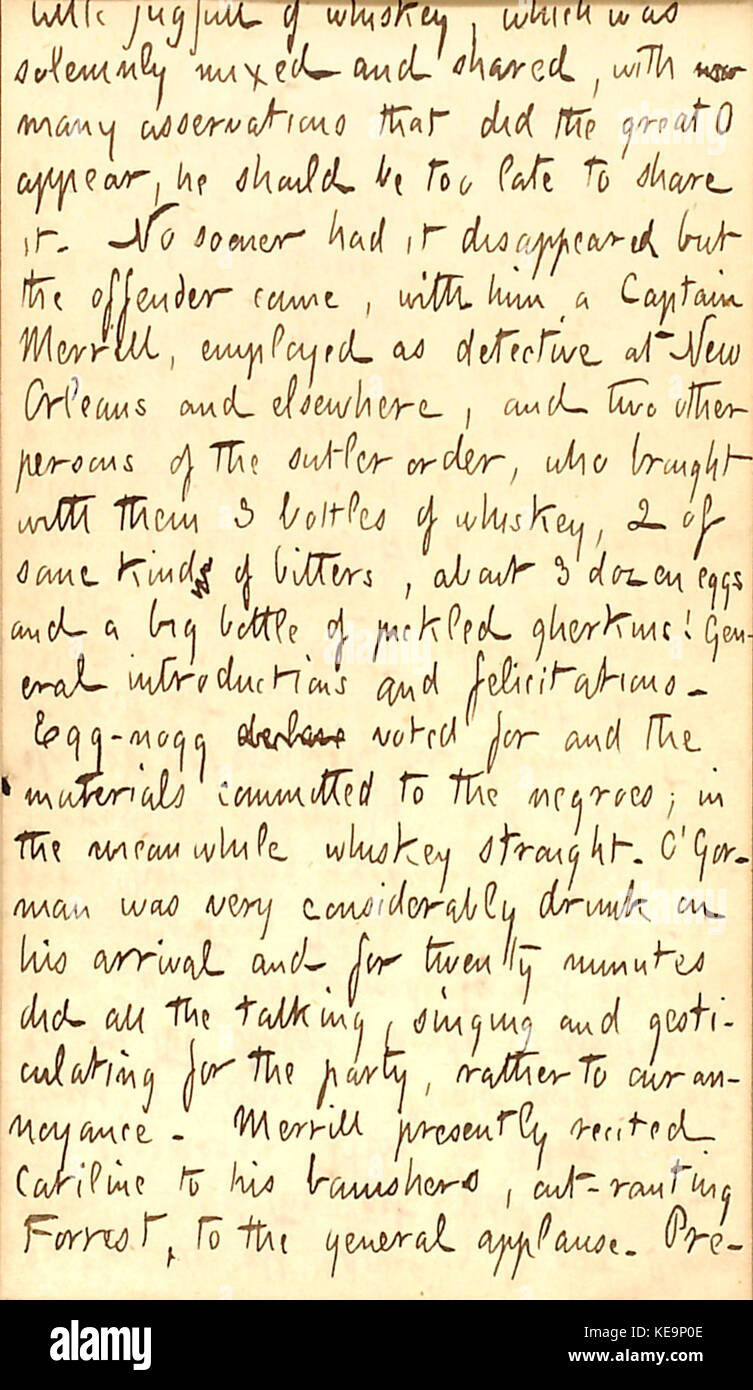 little jugfull of whiskey, which was
solemnly mixed and shared, with
many asservations that did the great O
appear, he should be too late to share
it. No sooner had it disappeared but
the offender came, with him a Captain
Merrill, employed as detective at New
Orleans and elsewhere, and two other
persons of the sutler order, who brought
with them 3 bottles of whiskey, 2 of
some kinds of bitters, about 3 dozen eggs
and a big bottle of pickled gherkins! Gen-
eral introductions and felicitations.
Egg-nogg voted for and the
materials committed to the negroes; in
the meanwhile whiskey straight. O'Gor-
man was very considerably drunk on
his arrival and for twenty minutes
did all the talking, singing and gesti-
culating for the party, rather to our an-
noyance. Merrill presently recited
Catiline to his banishers, out-ranting
Forrest, to the general applause. Pre-
alamy
Image ID: KE9P0E
www.alamy.com